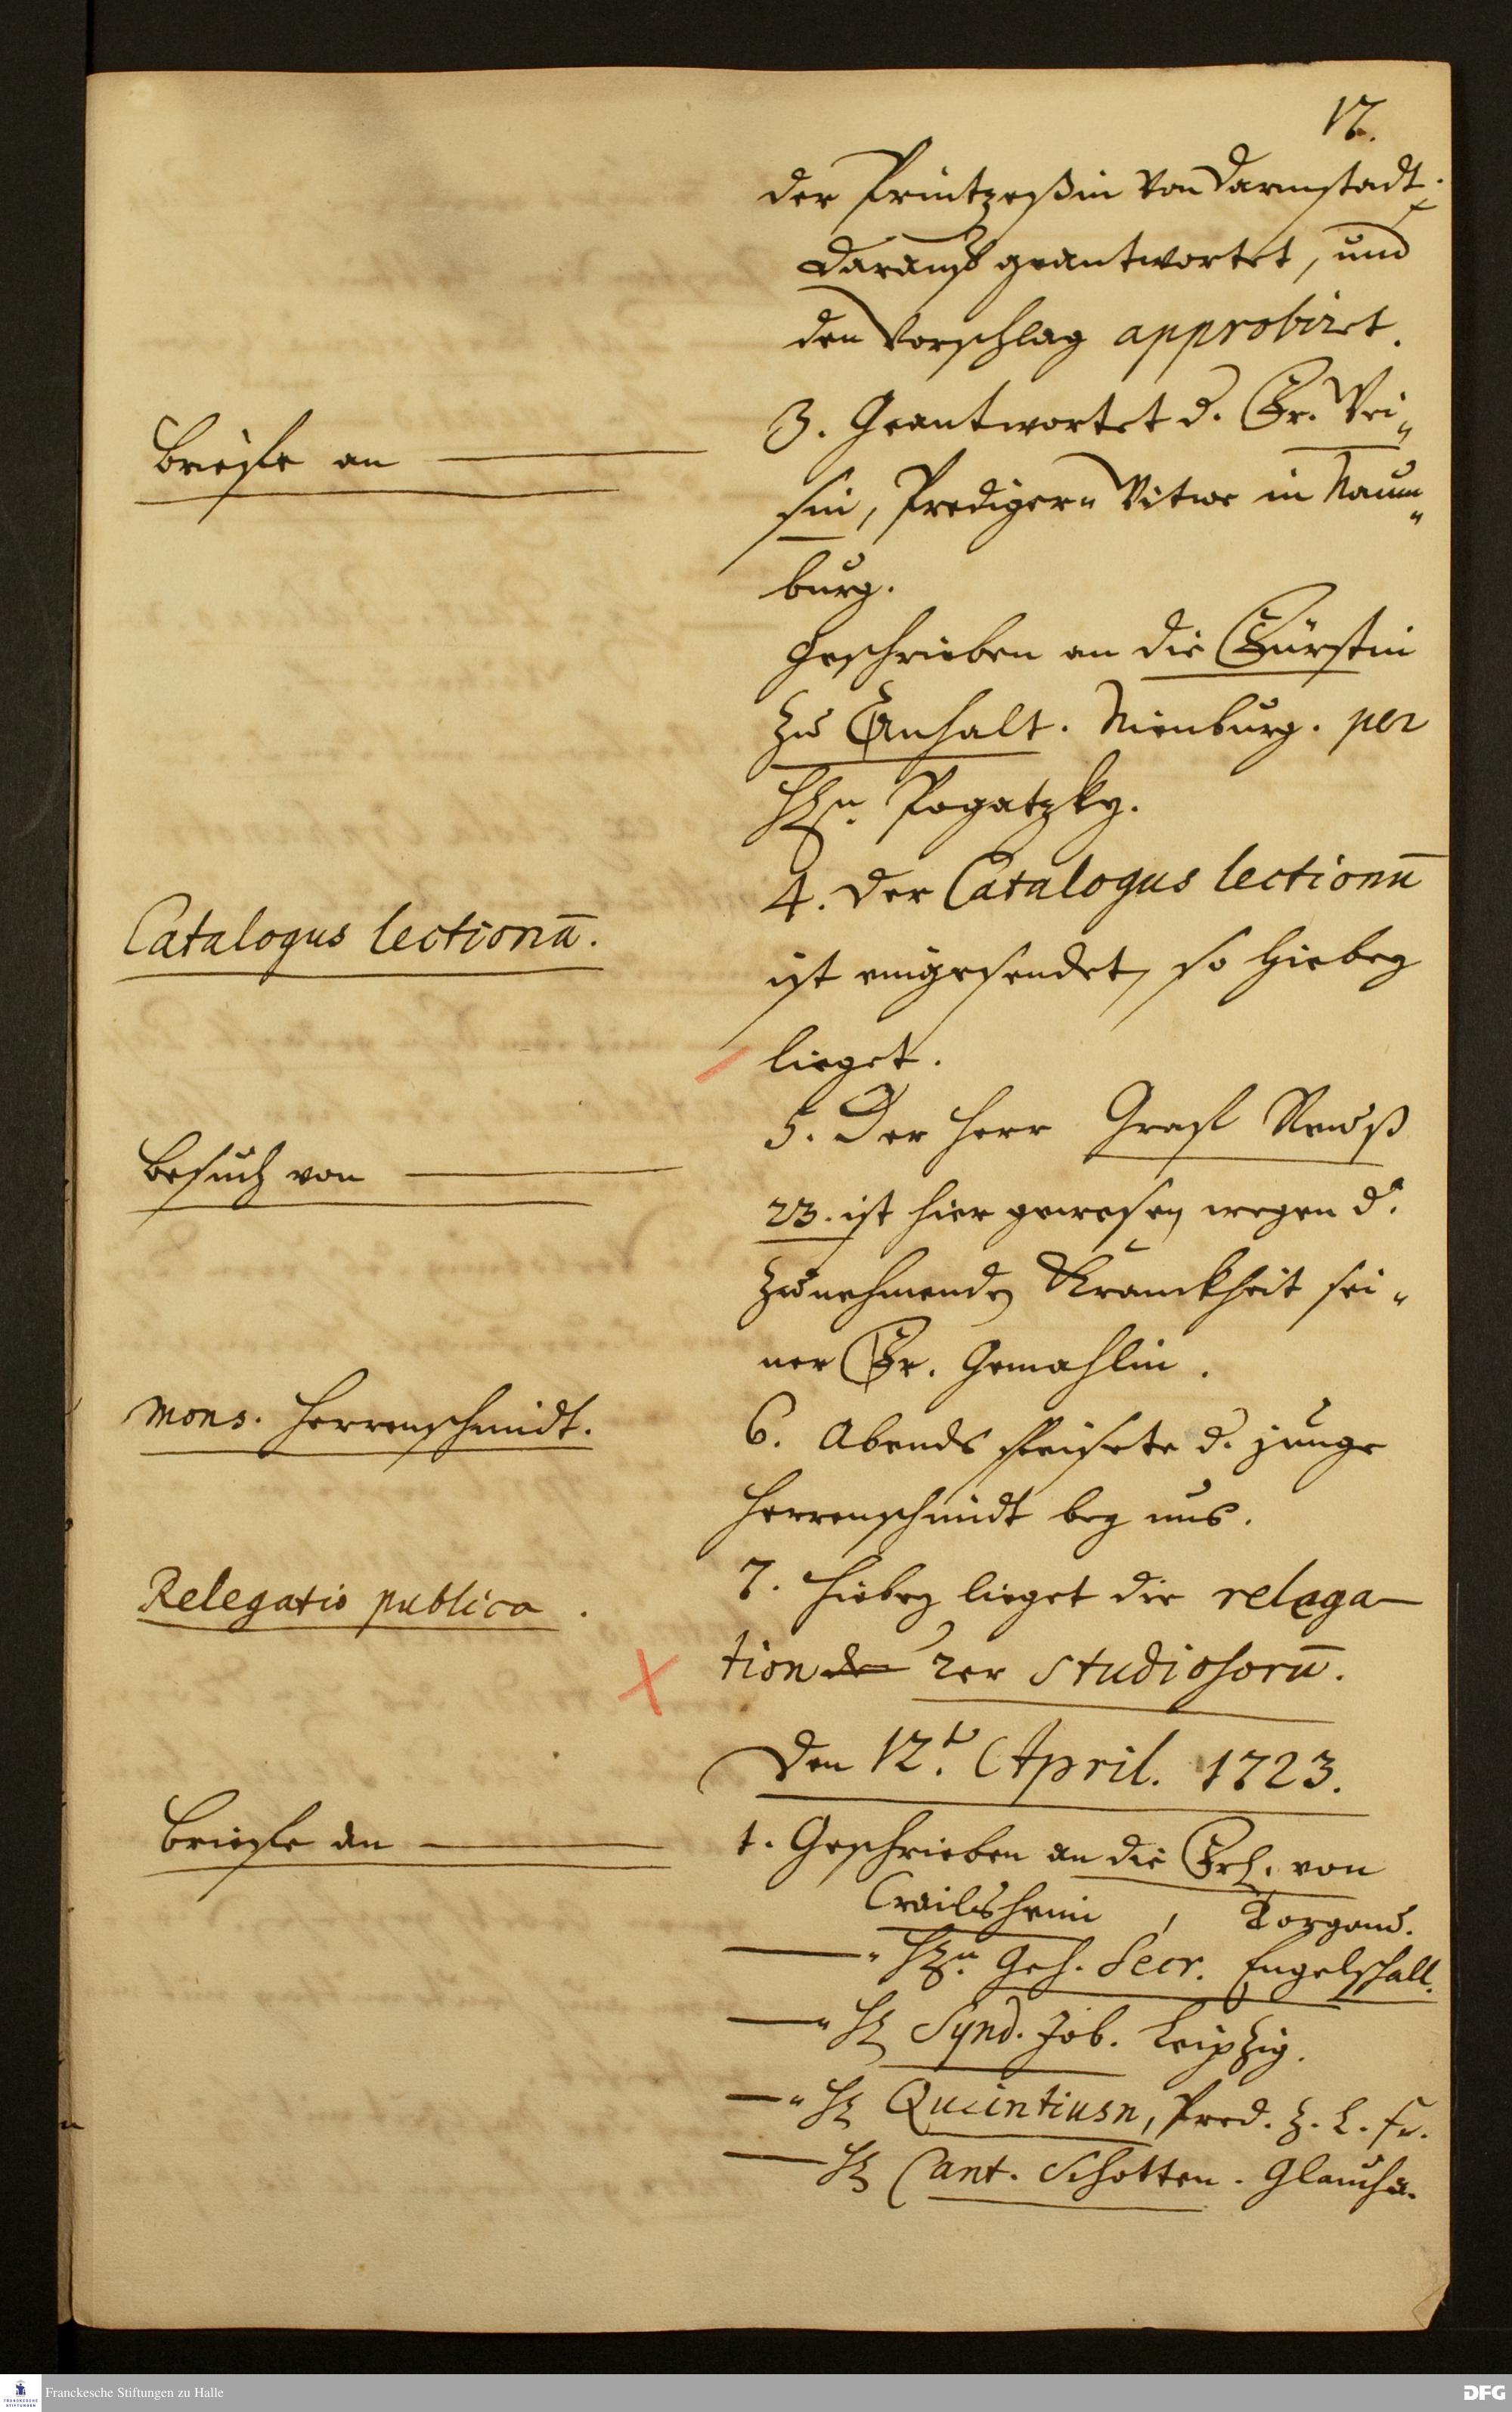 12.
der Printzeßin von Darmstadt
darauf geantwortet, und
den Vorschlag approbiret.
Briefe an
3. Geantwortet d. Fr. Vei„
sin, Predigers Witwe in Naum„
burg.
Geschrieben an die Fürstin
zu Anhalt. Nienburg. per
HErrn. Pogatzky.
Catalogus lectionū.
4. Der Catalogus lectionū
ist eingesendet, so hiebey
lieget.
Besuch von
5. Der Herr Graf Reuß
23. ist hier gewesen wegen d.
zunehmenden Kranckheit sei„
ner Fr. Gemahlin.
Mons. Herrenschmidt.
6. Abends speisete d. junge
Herrenschmidt bey uns.
Relegatio publica.
7. Hiebey lieget die relega–
tion 2er Studiosorū.
Den 12.t April. 1723.
Briefe an
1. Geschrieben an die Frl. von
Crailsheim, Torgau.
Hrn. Geh. Secr. Engelschall.
H Synd. Job. Leipzig.
H Quintiusn, Pred. z. L. Fr.
H Cant. Schotten. Glaucha.
Franckesche Stiftungen zu Halle
DFG